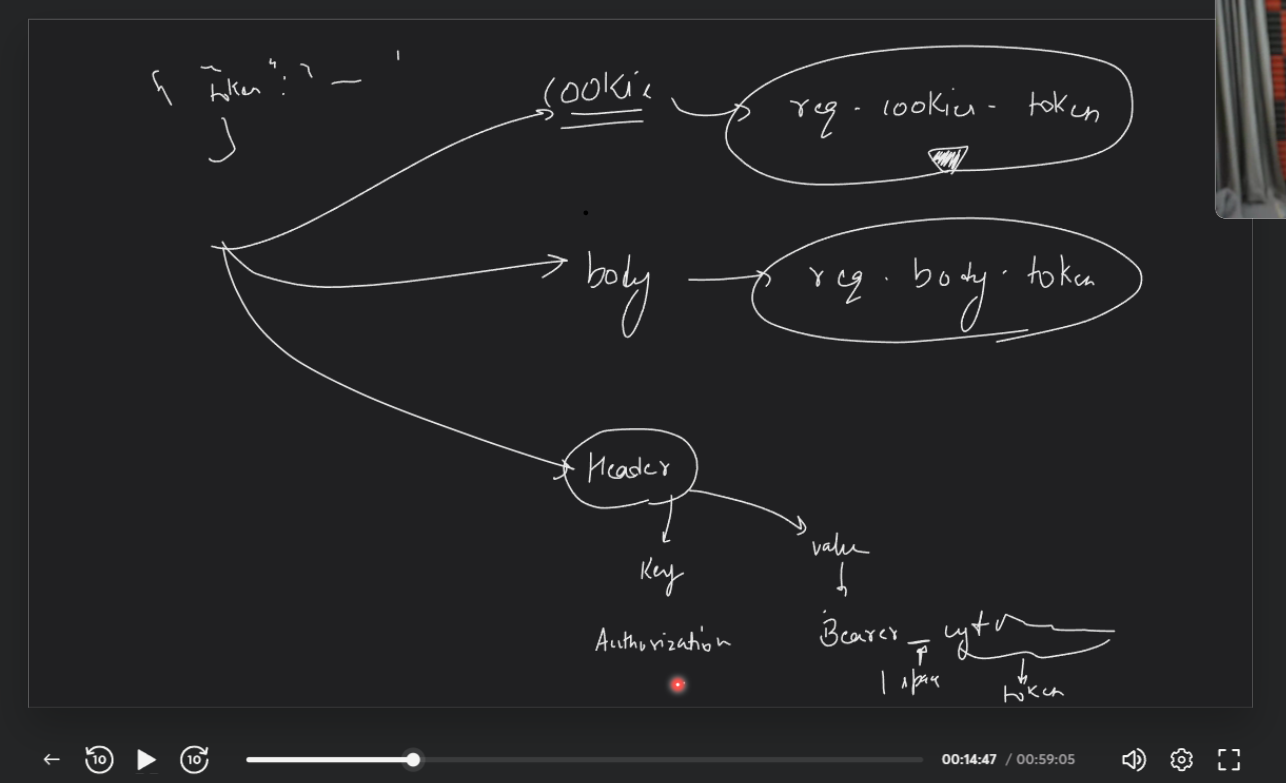 { "token" : " — "
}
cookie
req. cookies. token
body
req. body. token
Header
Key
value
Authorization
Bearer
1 space
token
10
10
00:14:47 / 00:59:05